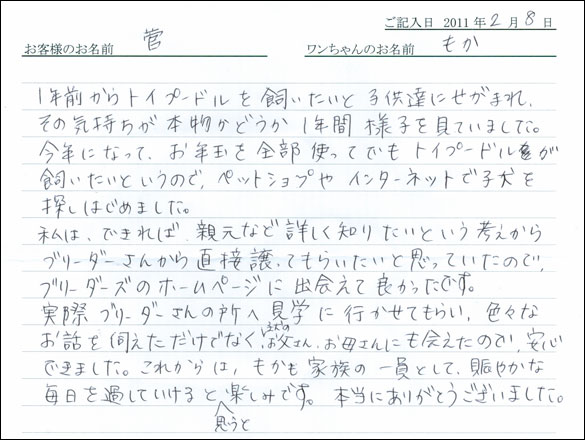 ご記入日 2011年2月8日
お客様のお名前 菅 ワンちゃんのお名前 もか
1年前からトイプードルを飼いたいと子供達にせがまれ、
その気持ちが本物かどうか1年間様子を見ていました。
今年になって、お年玉を全部使ってでもトイプードルが
飼いたいというので、ペットショップやインターネットで子犬を
探しはじめました。
私は、できれば、親元など詳しく知りたいという考えから
ブリーダーさんから直接譲ってもらいたいと思っていたので、
ブリーダーズのホームページに出会えて良かったです。
実際ブリーダーさんの所へ見学に行かせてもらい、色々な
お話を伺えただけでなく、お父さん、お母さんにも会えたので、安心
できました。これからは、もかも家族の一員として、賑やかな
毎日を過していけると思うと楽しみです。本当にありがとうございました。